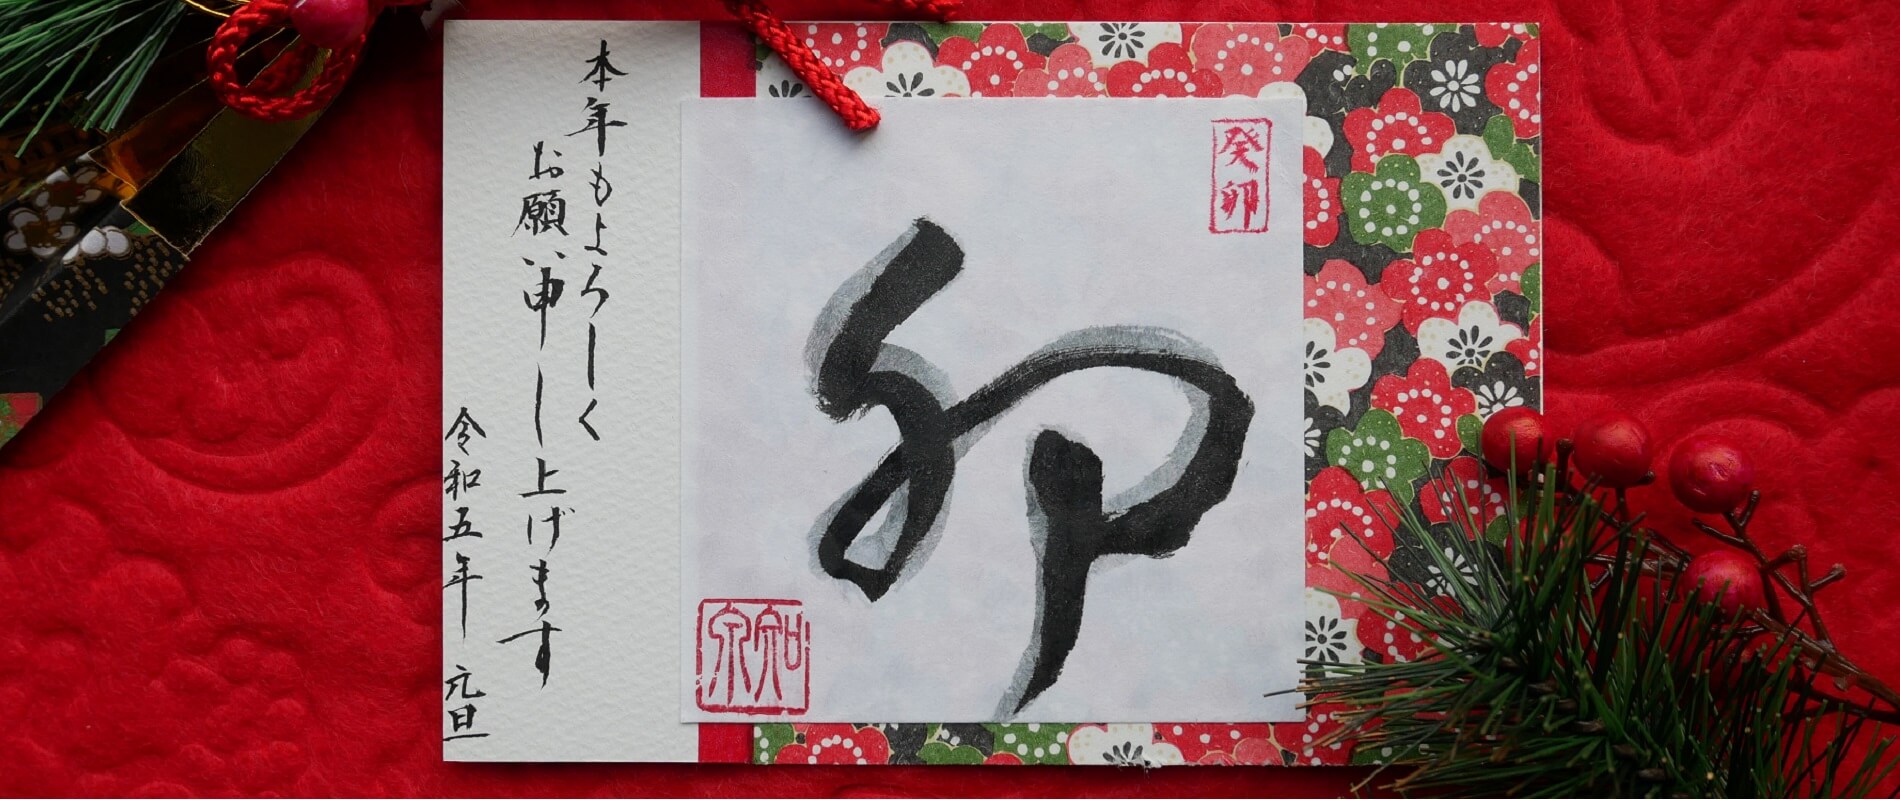 癸卯
卯
知泉
本年もよろしく
お願い申し上げます
令和五年 元旦